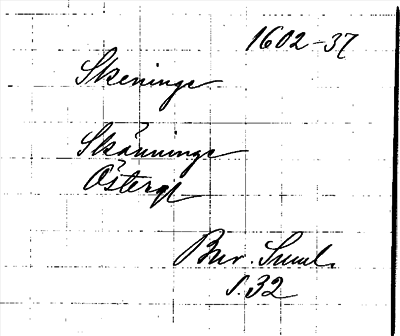 1602-37
Skeninge
Skänninge
Östergl
Bur. Suml.
s. 32